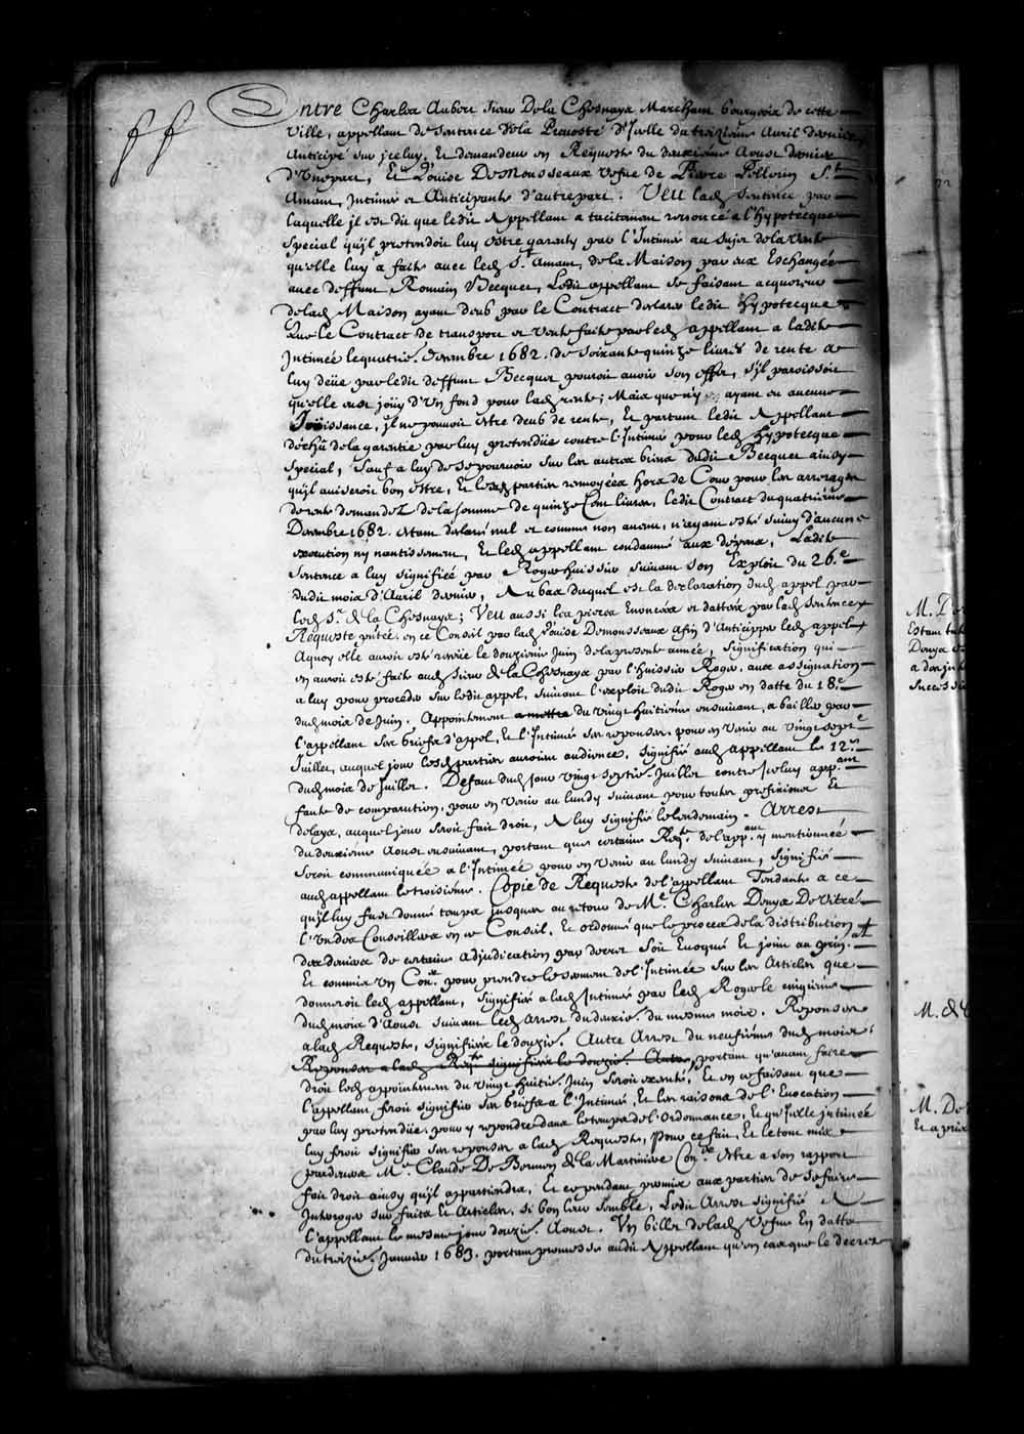 Entre Charles Aubert sieur Dela Chesnaye Marchant bourgeois de cette
Ville, appellant de Sentence dela Prevosté d'Icelle du treiziesme Avril dernier
Anticipé sur icelluy, Et demandeur en Requeste du deuxiesme Aoust dernier
d'Unepart, Et Louise DeMousseaux vefve de Pierre Pellerin St.
Amant, Intimée et Anticipante d'autre part. Veu lade Sentence par
Laquelle jl est dit que ledit Appellant a tacitement renoncé a l'hypotecque
Special qu'jl pretendoit luy estre garanty par l'Intimée au sujet dela Vente
qu'elle luy a faite avec led St. Amant, dela Maison par eux Eschangée
avec deffunt Romain Becquet, Ledit appellant se faisant acquereur
delad Maison ayant deub par le Contract declarer ledit hypotecque
Que le Contract de transport et vente faite par led appellant a ladite
Intimée le quatrie. Decembre 1682. de soixante quinze livres de rente a
luy deüe par ledit deffunt Becquet pouvoit avoir son effet, s'jl paroissoit
qu'elle eust joüy d'Un fond pour lad rente; Mais que n'y ayant eu aucune
Joüissance, jl ne pouvoit estre deub de rente, Et partant ledit Appellant
décheu dela garentie par luy pretendüe contre l'Intimée pour led hypotecque
Special, Sauf a luy de se pourvoir sur les autres biens dudit Becquet ainsy
qu'jl aviseroit bon estre, Et lesd parties renvoyées hors de Cour pour les arrerages
de rente demandez dela somme de quinze Cent livres, ledit Contract du quatriesme
Decembre 1682. estant declaré nul et comme non avenu, n'ayant esté suivy d'aucune
execution ny nantissement, Et led appellant condamné aux dépens, Ladite
Sentence a luy signifiée par Roger huissier suivant son Exploit du 26.e
dudit mois d'Avril dernier, Au bas duquel est la declaration dud appel par
led Sr. de la Chesnaye; Veu aussi les pieces Enoncées et dattées par lad Sentence
Requeste pntée. en ce Conseil par lad Louise Demousseaux afin d'Anticipper led appel
Aquoy elle auroit esté receüe le douziesme Juin dela presente année, signification qui
en auroit esté faite aud sieur de la Chesnaye par l'huissier Roger. aux assignation
a luy pour proceder sur ledit appel, suivant l'exploit dudit Roger en datte du 18.e
dud mois de Juin. Appointement a mettre du vingt huitiesme ensuivant, a bailler par
l'appellant ses griefs d'appel, Et l'Intimée ses reponses, pour en venir au vingt septe
Juillet, auquel jour lesd parties auroient audience, signifié aud appellant le 12.e
dud mois de Juillet. Defaut dud jour vingt septie. Juillet contre Iceluy appant
faute de comparution, pour en venir au lundy suivant pour toutes prefixions Et
delays, auquel jour seroit fait droit, A luy signifié le lendemain. Arrest
du deuxiesme Aoust ensuivant, portant que certaine Reqte. del'appant. y mentionnée
seroit communiquée a l'Intimée pour en venir au lundy suivant, signifié
aud appellant le troisiesme. Copie de Requeste de l'appellant Tendante a ce
qu'jl luy fust donné temps jusques au retour de Me. Charles Denys De Vitré
l'Un des Conseillers en ce Conseil, Et ordonné que le procez dela distribution
des deniers de certaine adjudication par decret soit Evoqué Et joint au prnt.
Et commis un Conr. pour prendre le serment de l'Intimée sur les Articles que
donneroit led appellant, signifiée a lad Intimée par led Roger le cinquiesme
dud mois d'Aoust suivant led arrest du deuxie. du mesme mois. Reponses
a lad Requeste, signifiées le douzie. Autre Arrest du neufiesme dud mois
Reponses a lad Reqte signifiées le douzie. Autre, portant qu'avant faire
droit led appointement du vingt huitie. Juin seroit executé, Et en ce faisant que
l'appellant feroit signifier ses griefs a l'Intimée, Et les raisons de l'Evocation
par luy pretendüe, pour y repondre dans le temps de l'Ordonnance, Et qu'Icelle intimée
luy feroit signifier ses reponses a lad Requeste, pour ce fait, Et le tout mis
pardevers Me. Claude De Bermen de la Martiniere Coner. Estre a son rapport
fait droit ainsy qu'jl appartiendra, Et cependant permis aux parties de se faire
Interroger sur faits Et Articles, si bon leur semble, Ledit Arrest signifié A
l'appellant le mesme jour douzie. Aoust. Un billet delad Vefve En datte
du treizie. Janvier 1683. portant promesse audit Appellant qu'en cas que le decret
M. De
Estant
Denys
a donj
Success
M. de
M. De
Et apris